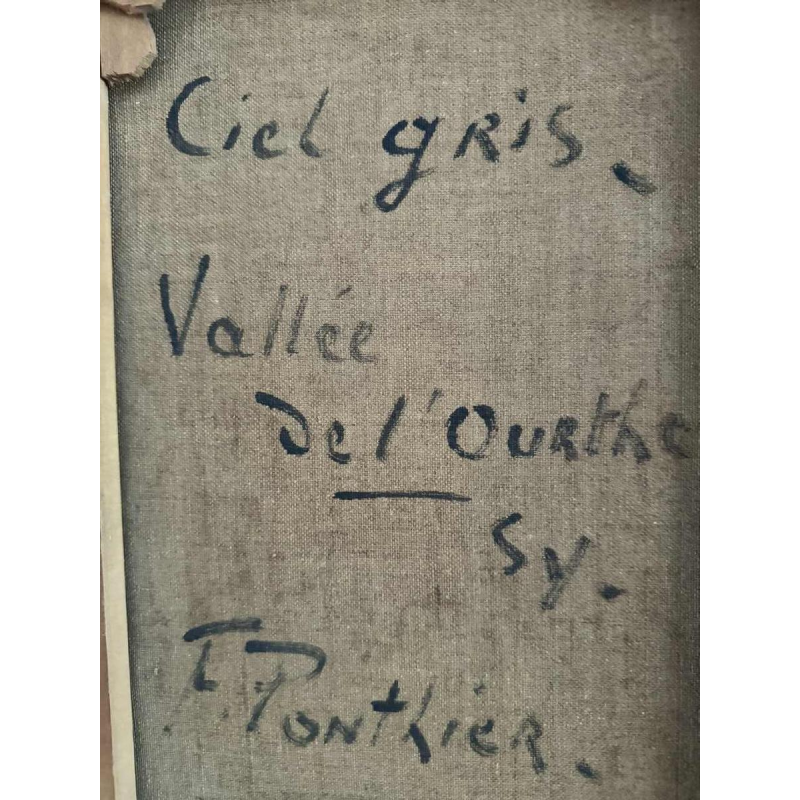 Ciel gris.
Vallée
de l'Ourthe
Sy.
F. Ponthier.